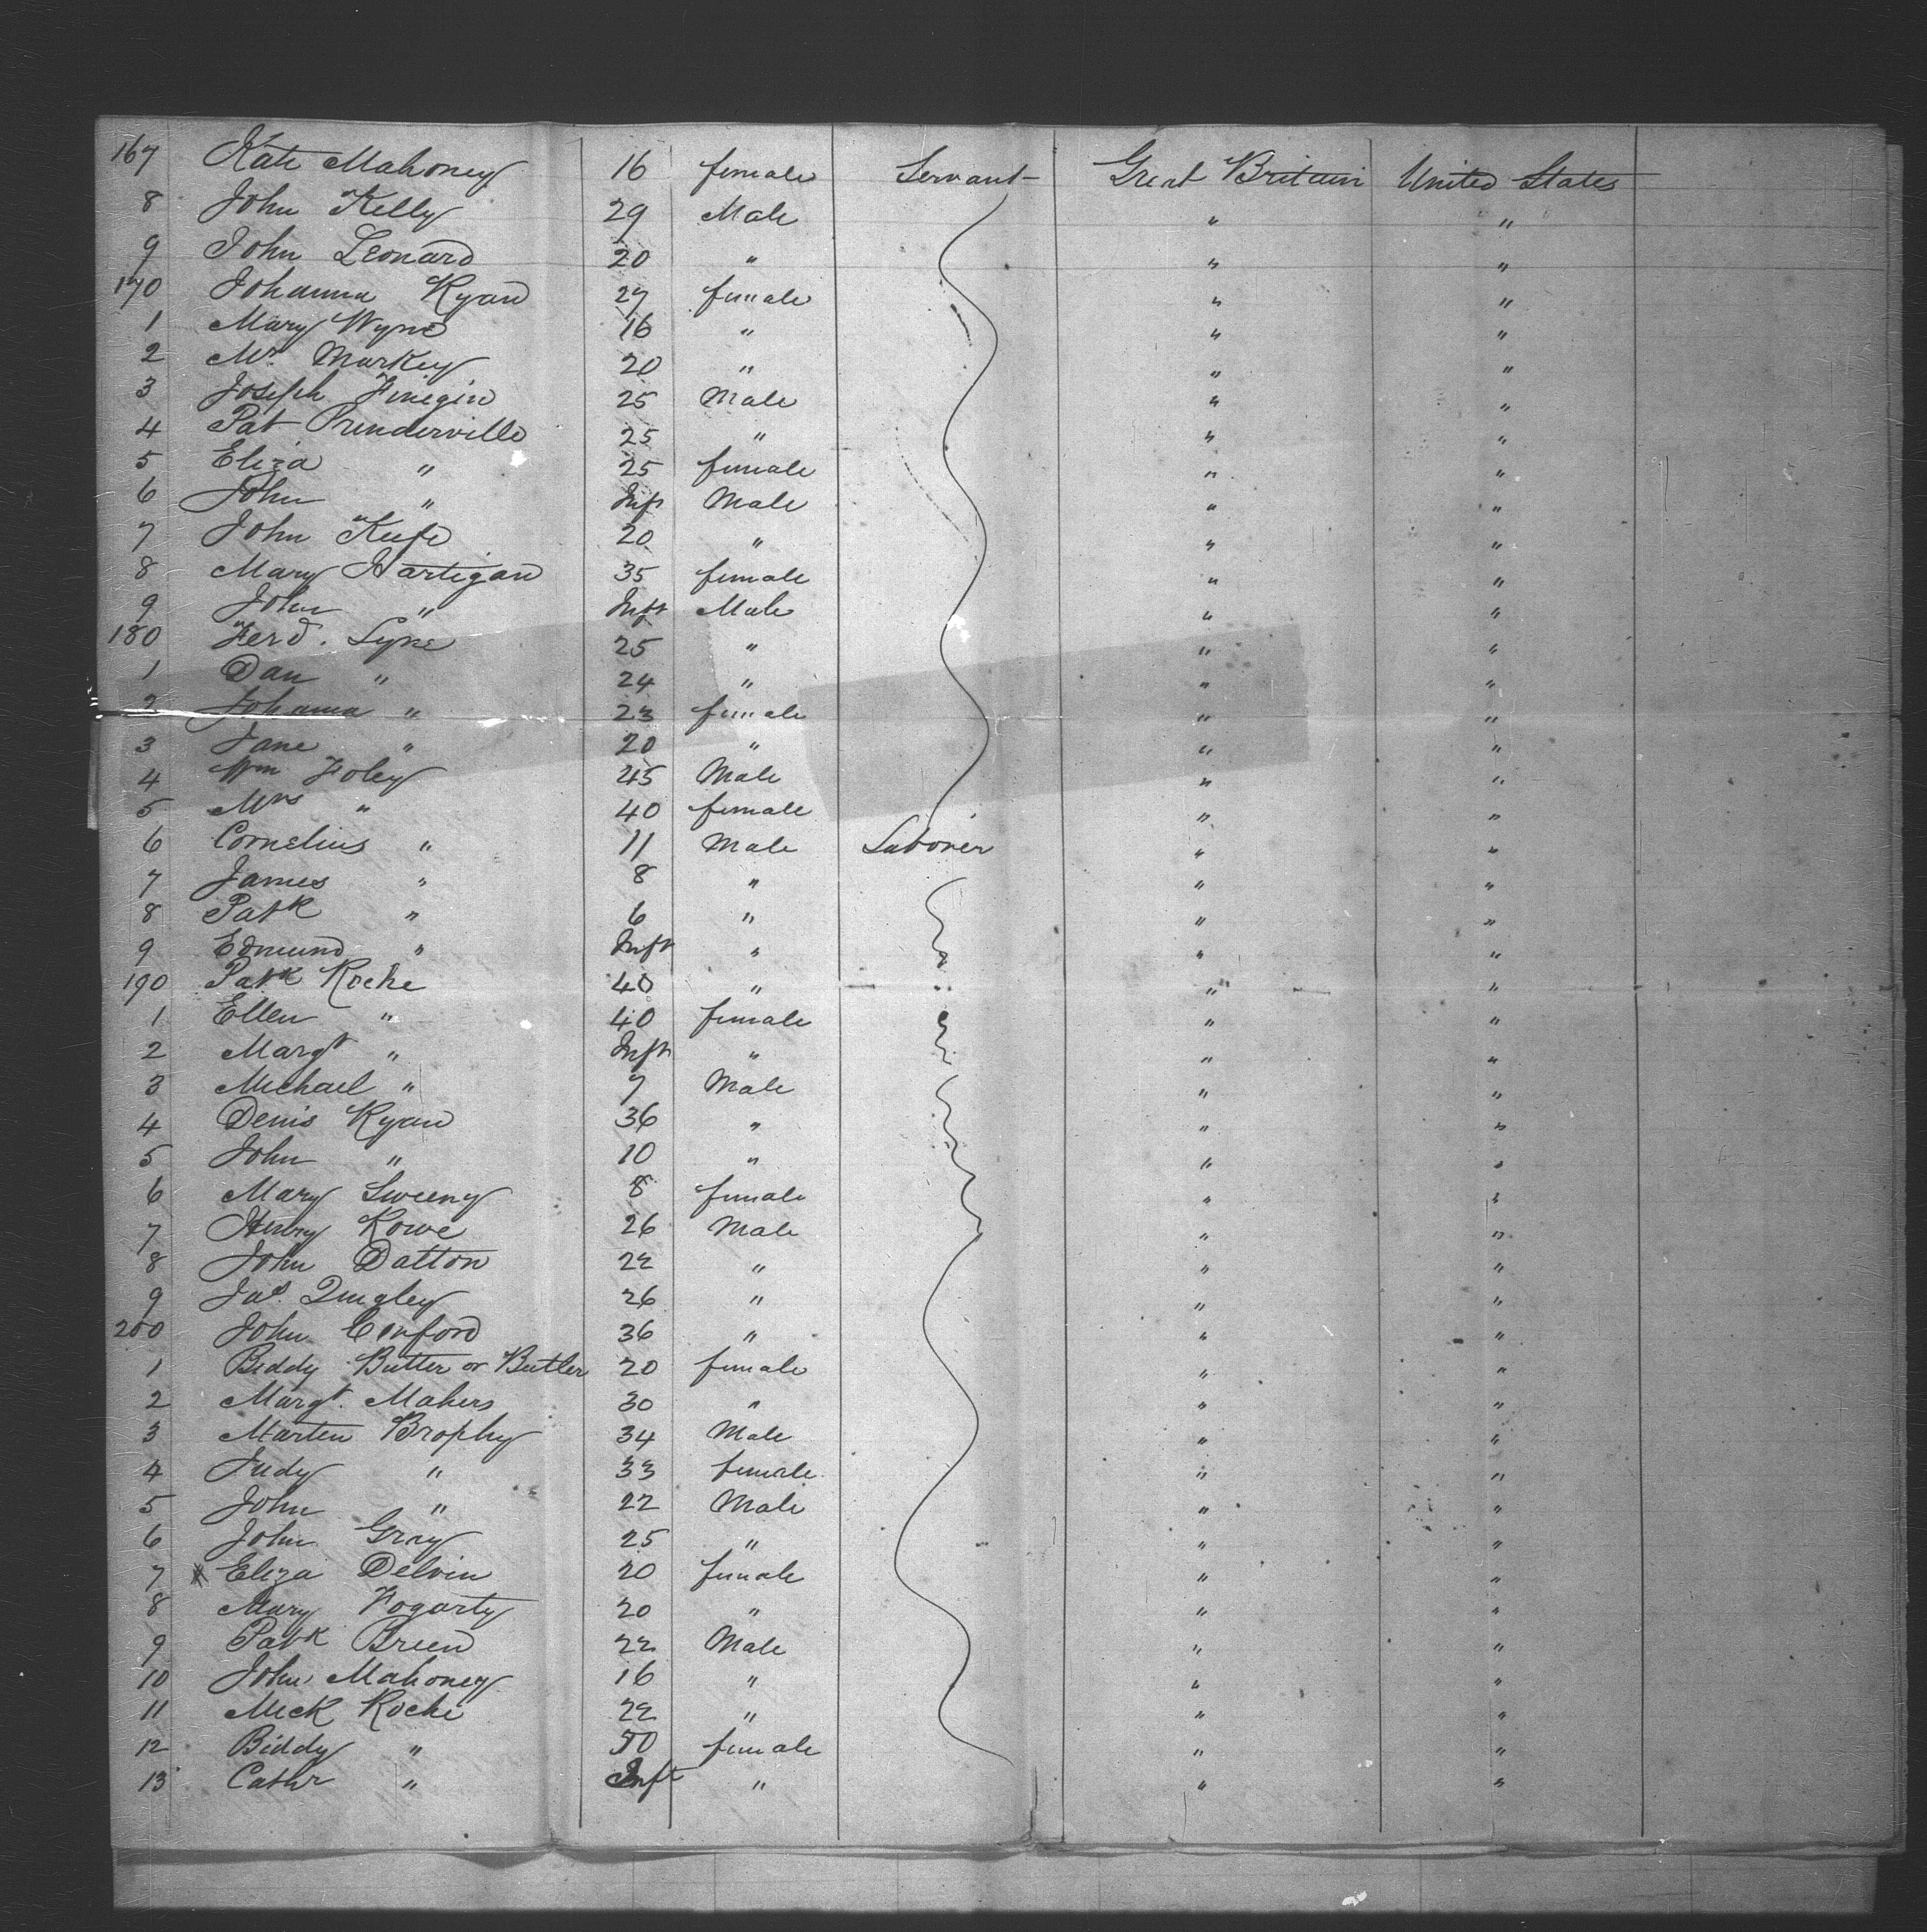 167 Kate Mahoney 16 female Servant Great Britain United States
8 John Kelly 29 Male " "
9 John Leonard 20 " " "
170 Johanna Ryan 27 female " "
1 Mary Wyne 16 " " "
2 Mr. Markey 20 " " "
3 Joseph Finegin 25 Male " "
4 Pat Prenderville 25 " " "
5 Eliza " 25 female " "
6 John " Inft Male " "
7 John Keefe 20 " " "
8 Mary Hartigan 35 female " "
9 John " Inft Male " "
180 Ferd. Lyne 25 " " "
1 Dan " 24 " " "
2 Johanna " 23 female " "
3 Jane " 20 " " "
4 Wm Foley 45 Male " "
5 Mrs " 40 female " "
6 Cornelius " 11 Male Laborer " "
7 James " 8 " " "
8 Patk " 6 " " "
9 Edmund " Inft " " "
190 Patk Roche 40 " " "
1 Ellen " 40 female " "
2 Margt " Inft " " "
3 Michael " 7 Male " "
4 Denis Ryan 36 " " "
5 John " 10 " " "
6 Mary Sweeny 8 female " "
7 Henry Rowe 26 Male " "
8 John Dalton 22 " " "
9 Jas. Quigley 26 " " "
200 John Conford 36 " " "
1 Biddy Butter or Butler 20 female " "
2 Margt. Mahers 30 " " "
3 Marten Brophy 34 Male " "
4 Judy " 33 female " "
5 John " 22 Male " "
6 John Gray 25 " " "
7 Eliza Delvin 20 female " "
8 Mary Fogarty 20 " " "
9 Patk Breen 22 Male " "
10 John Mahoney 16 " " "
11 Mick Roche 22 " " "
12 Biddy " 50 female " "
13 Cathr " Inft " " "